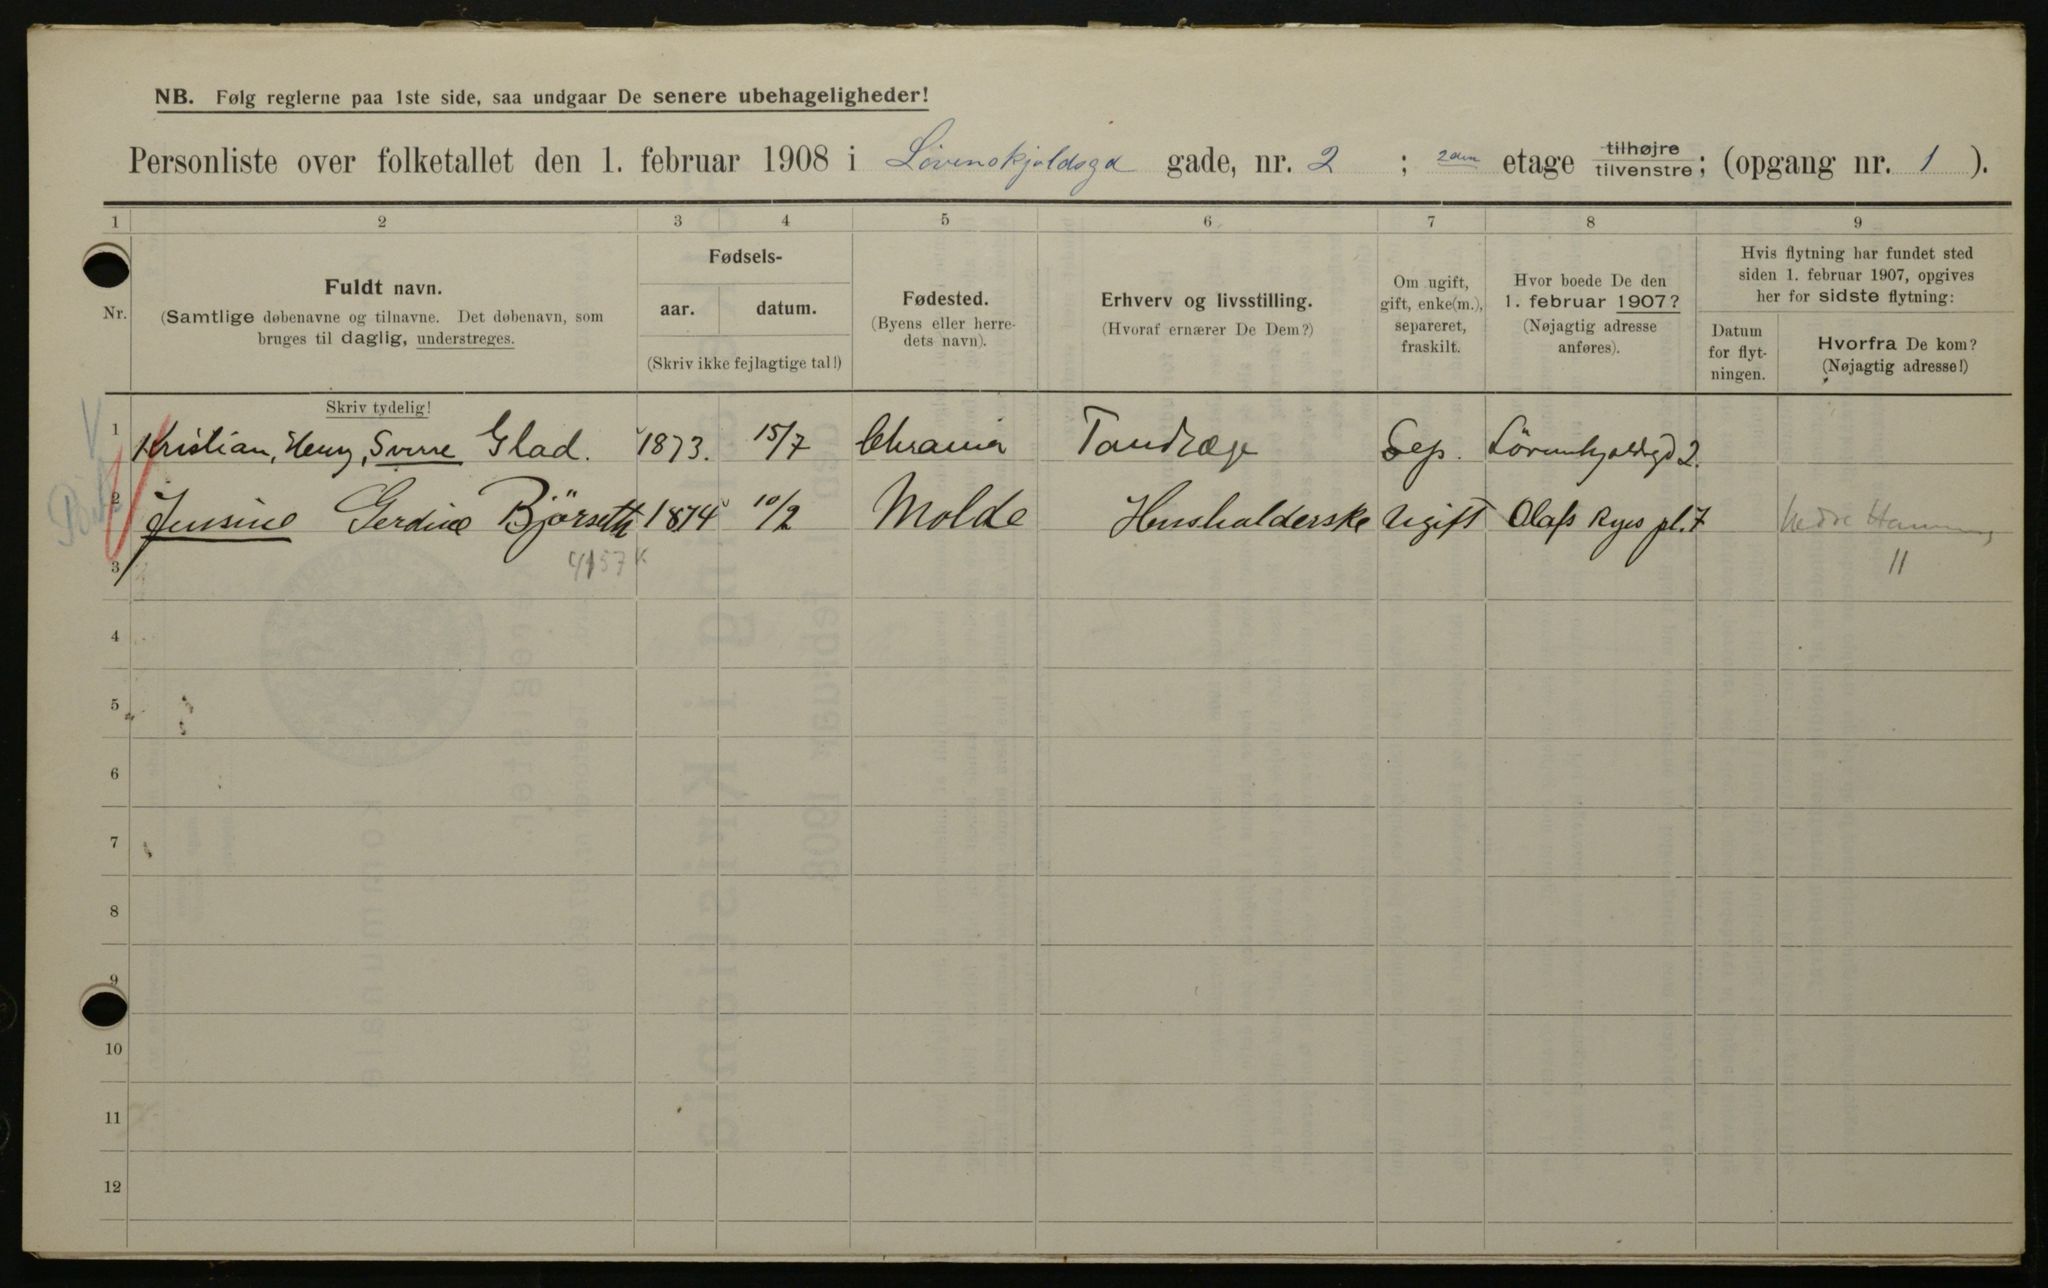 NB. Følg reglerne paa 1ste side, saa undgaar De senere ubehageligheder!
Personliste over folketallet den 1. februar 1908 i Løvenskjoldsgd gade, nr. 2 ; 2den etage tilhøjre/tilvenstre; (opgang nr. 1 ).
1 2 3 4 5 6 7 8 9
Nr. Fuldt navn. (Samtlige døbenavne og tilnavne. Det døbenavn, som bruges til daglig, understreges.
Fødsels- aar. datum. (Skriv ikke fejlagtige tal!)
Fødested. (Byens eller herredets navn).
Erhverv og livsstilling. (Hvoraf ernærer De Dem?)
Om ugift, gift, enke(m.), separeret, fraskilt.
Hvor boede De den 1. februar 1907? (Nøjagtig adresse anføres).
Hvis flytning har fundet sted siden 1. februar 1907, opgives her for sidste flytning:
Datum for flytningen. Hvorfra De kom? (Nøjagtig adresse!)
Skriv tydelig!
1 Kristian, Henry, Sverre Glad. 1873. 15/7 Chrania Tandlæge Sep. Løvenskjoldsgd 2.
2 Jensine Gerdine Bjørseth 1874 10/2 Molde Husholderske Ugift Olafs Ryes pl. 7 Nedre
3 4157 K 11
4
5
6
7
8
9
10
11
12